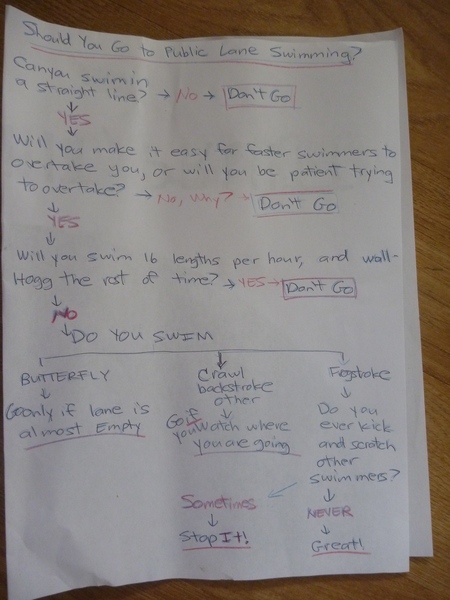 Should You Go to Public Lane Swimming?
Can you swim in
a straight line? → No → Don't Go
YES
Will you make it easy for faster swimmers to
overtake you, or will you be patient trying
to overtake? → No, Why? → Don't Go
YES
Will you swim 16 lengths per hour, and wall-
Hogg the rost of time? → YES → Don't Go
No
Do You SWIM
BUTTERFLY
Go only if lane is
almost Empty
Crawl
backstroke
other
Go if
you Watch where
you are going
Frogstroke
Do you
ever kick
and scratch
other
swimmers?
Sometimes
Stop It!
NEVER
Great!